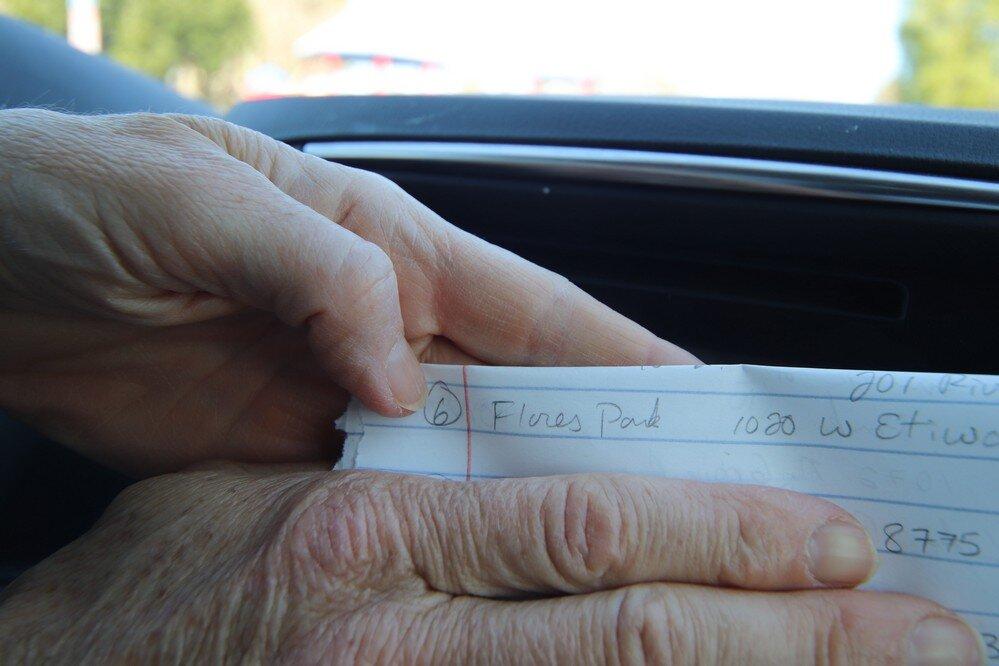 201
6 Flores Park 1020 W Etiwa
8775
3